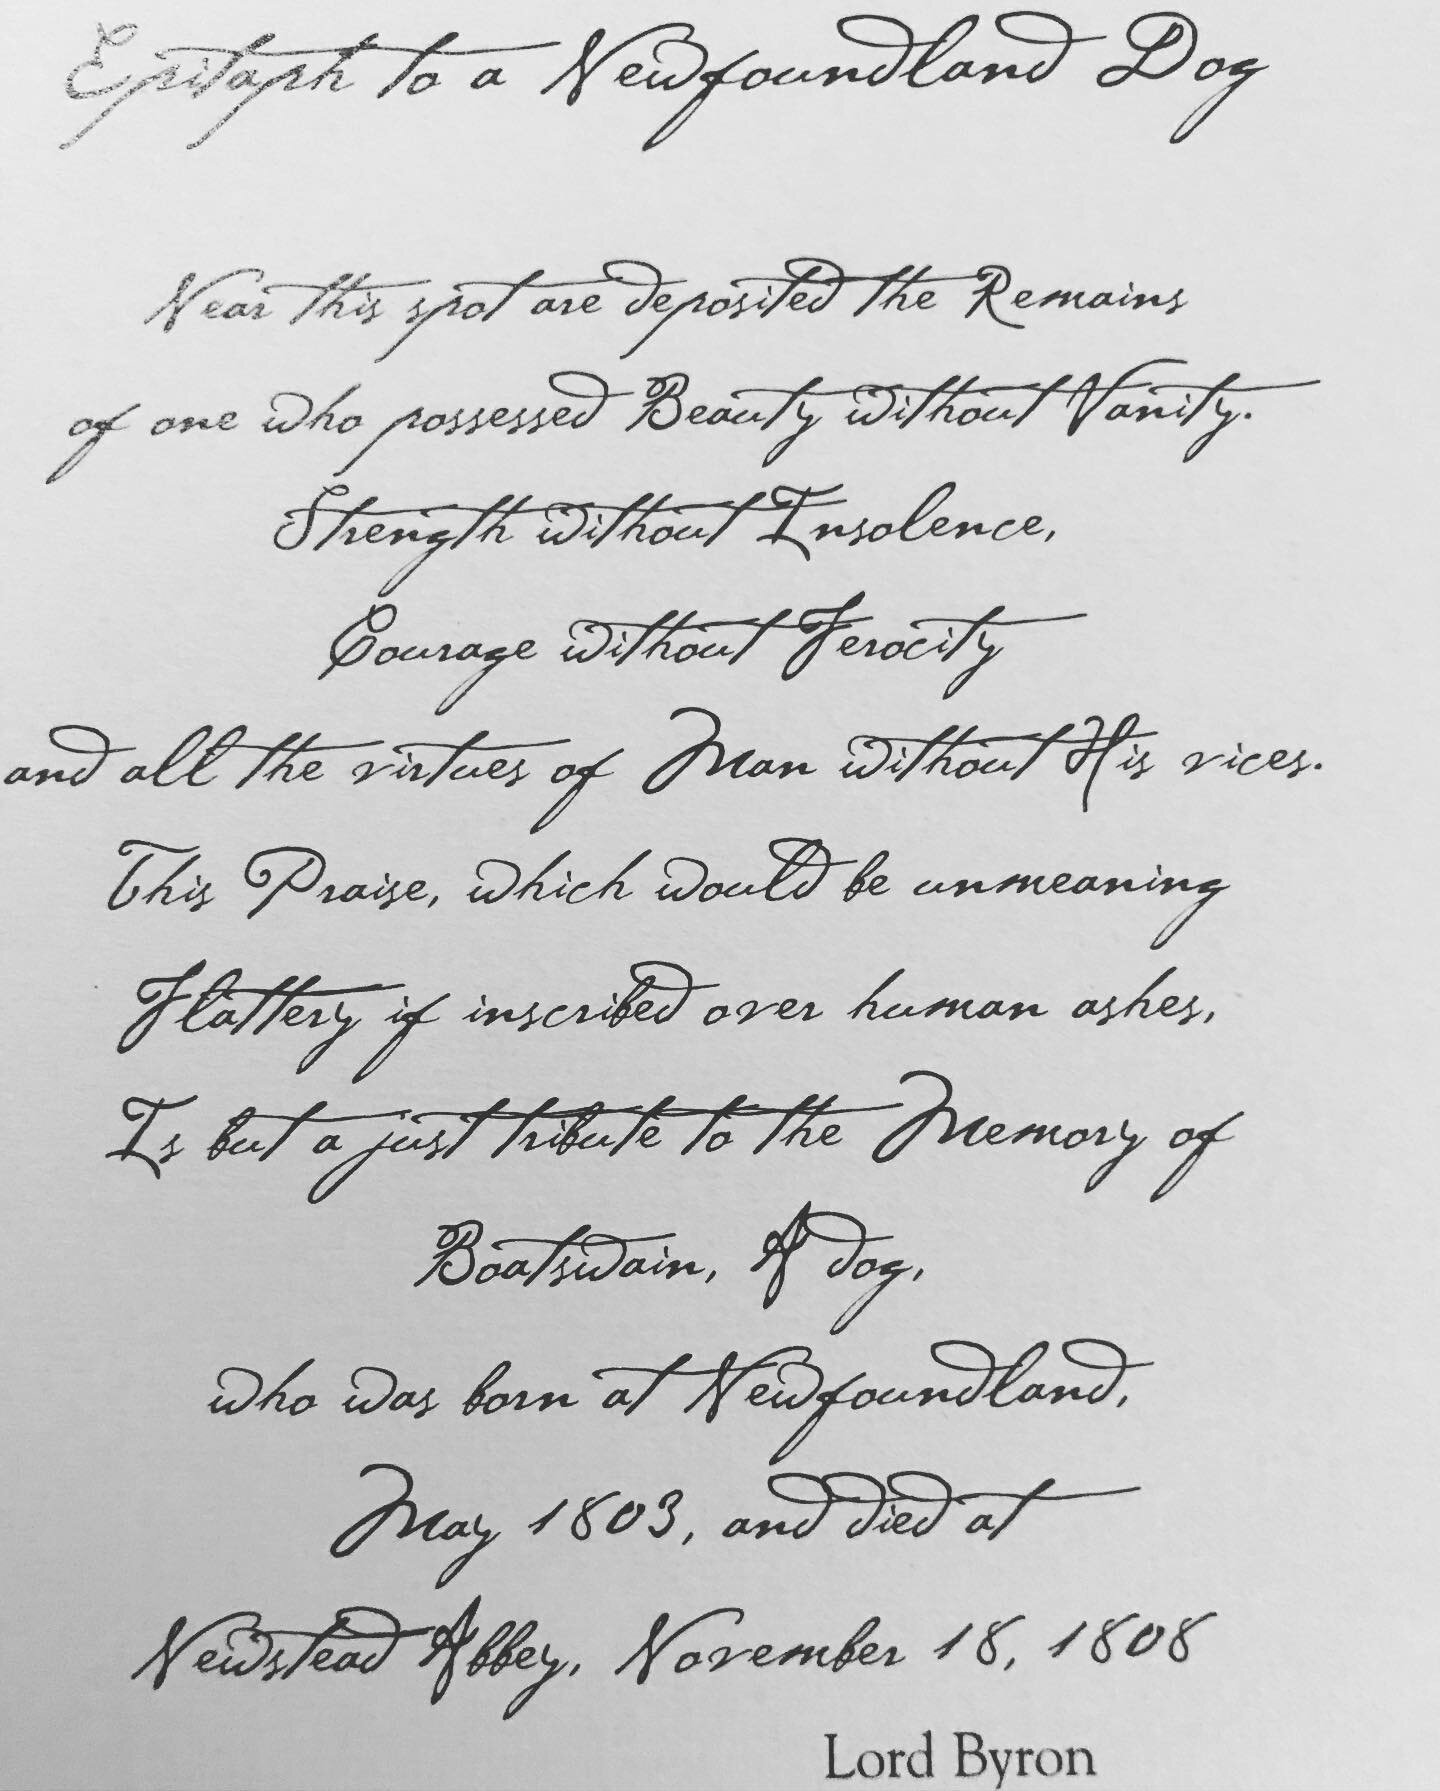 Epitaph to a Newfoundland Dog
Near this spot are deposited the Remains
of one who possessed Beauty without Vanity.
Strength without Insolence,
Courage without Ferocity
and all the virtues of Man without His vices.
This Praise, which would be unmeaning
Flattery if inscribed over human ashes,
Is but a just tribute to the Memory of
Boatswain, A dog,
who was born at Newfoundland,
May 1803, and died at
Newstead Abbey, November 18, 1808
Lord Byron